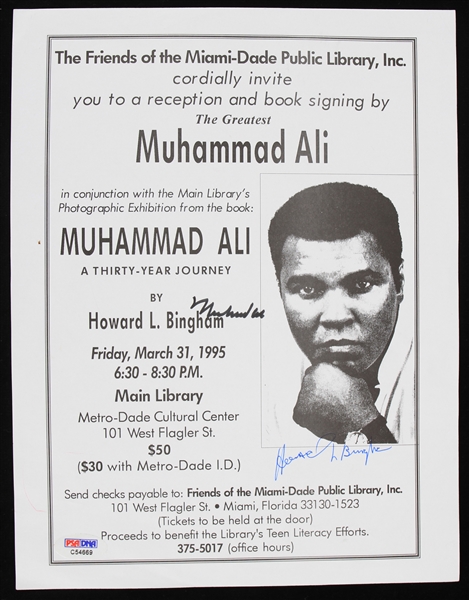 The Friends of the Miami-Dade Public Library, Inc.
cordially invite
you to a reception and book signing by
The Greatest
Muhammad Ali
in conjunction with the Main Library's
Photographic Exhibition from the book:
MUHAMMAD ALI
A THIRTY-YEAR JOURNEY
BY
Muhammad Ali
Howard L. Bingham
Friday, March 31, 1995
6:30 - 8:30 P.M.
Main Library
Metro-Dade Cultural Center
101 West Flagler St.
$50
($30 with Metro-Dade I.D.)
Howard L Bingham
Send checks payable to: Friends of the Miami-Dade Public Library, Inc.
101 West Flagler St. • Miami, Florida 33130-1523
(Tickets to be held at the door)
Proceeds to benefit the Library's Teen Literacy Efforts.
375-5017 (office hours)
PSA/DNA
C54669